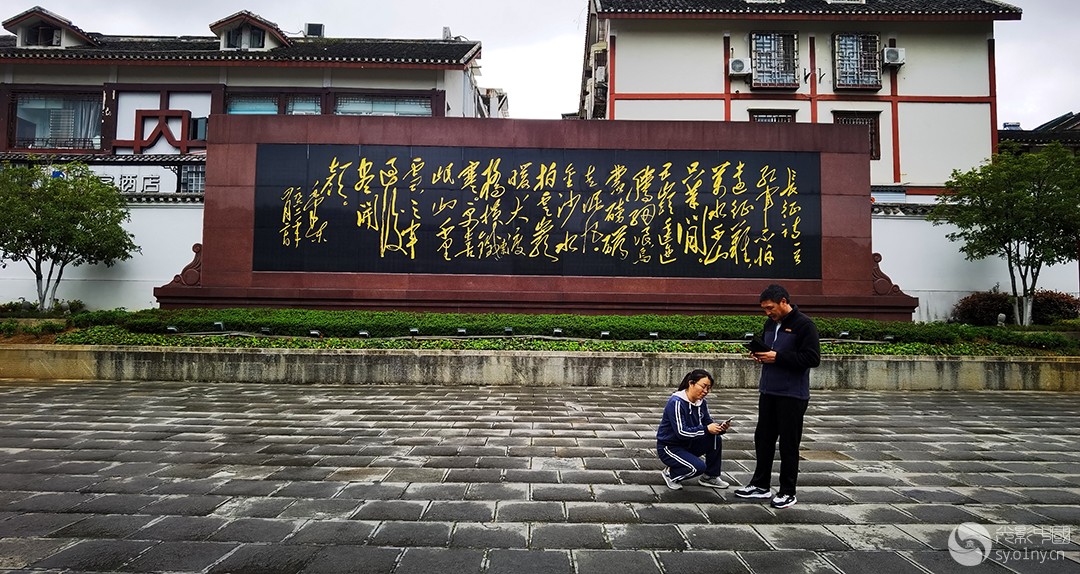 长征诗一首
红军不怕
远征难
万水千山
只等闲
五岭逶迤
腾细浪乌
蒙磅礴
走泥丸
金沙水
拍云崖
暖大渡
桥横铁索
寒更喜
岷山千里
雪三军
过后
尽开
颜
毛泽东
大
酒店
光影中国
sy.o1ny.cn